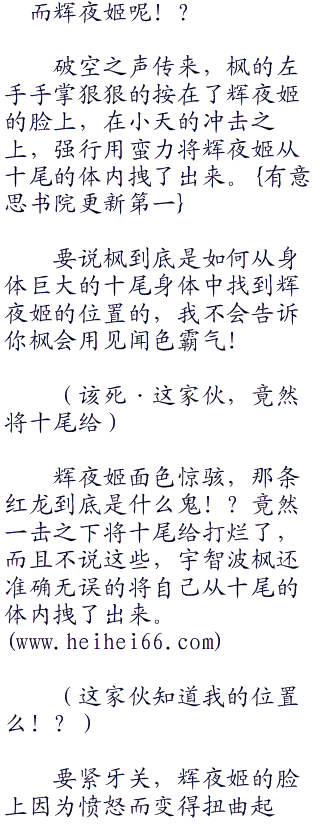 而辉夜姬呢！？
破空之声传来，枫的左
手手掌狠狠的按在了辉夜姬
的脸上，在小天的冲击之
上，强行用蛮力将辉夜姬从
十尾的体内拽了出来。{有意
思书院更新第一}
要说枫到底是如何从身
体巨大的十尾身体中找到辉
夜姬的位置的，我不会告诉
你枫会用见闻色霸气！
（该死·这家伙，竟然
将十尾给）
辉夜姬面色惊骇，那条
红龙到底是什么鬼！？竟然
一击之下将十尾给打烂了，
而且不说这些，宇智波枫还
准确无误的将自己从十尾的
体内拽了出来。
(www.heihei66.com)
（这家伙知道我的位置
么！？）
要紧牙关，辉夜姬的脸
上因为愤怒而变得扭曲起